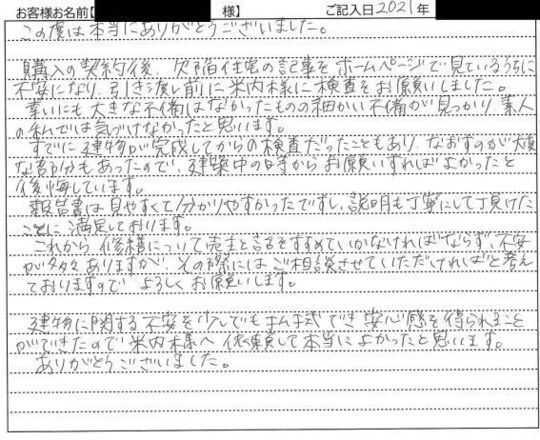 お客様お名前【 様】 ご記入日2021年
この度は本当にありがとうございました。
購入の契約後、欠陥住宅の記事をホームページで見ているうちに
不安になり、引き渡し前に米内様に検査をお願いしました。
幸いにも大きな不備はなかったものの細かい不備が見つかり、素人
の私では気づけなかったと思います。
すでに建物が完成してからの検査だったこともあり、なおすのが大変
な部分もあったので、建築中の時からお願いすればよかったと
後悔しています。
報告書は見やすくて分かりやすかったですし、説明も丁寧にして頂けた
ことに満足しております。
これから修繕について売主と話をすすめていかなければならず、不安
が多々ありますが、その際にはご相談させていただければと考え
ておりますので よろしくお願いします。
建物に関する不安を少しでも払拭でき安心感を得られること
ができたので米内様へ依頼して本当によかったと思います。
ありがとうございました。